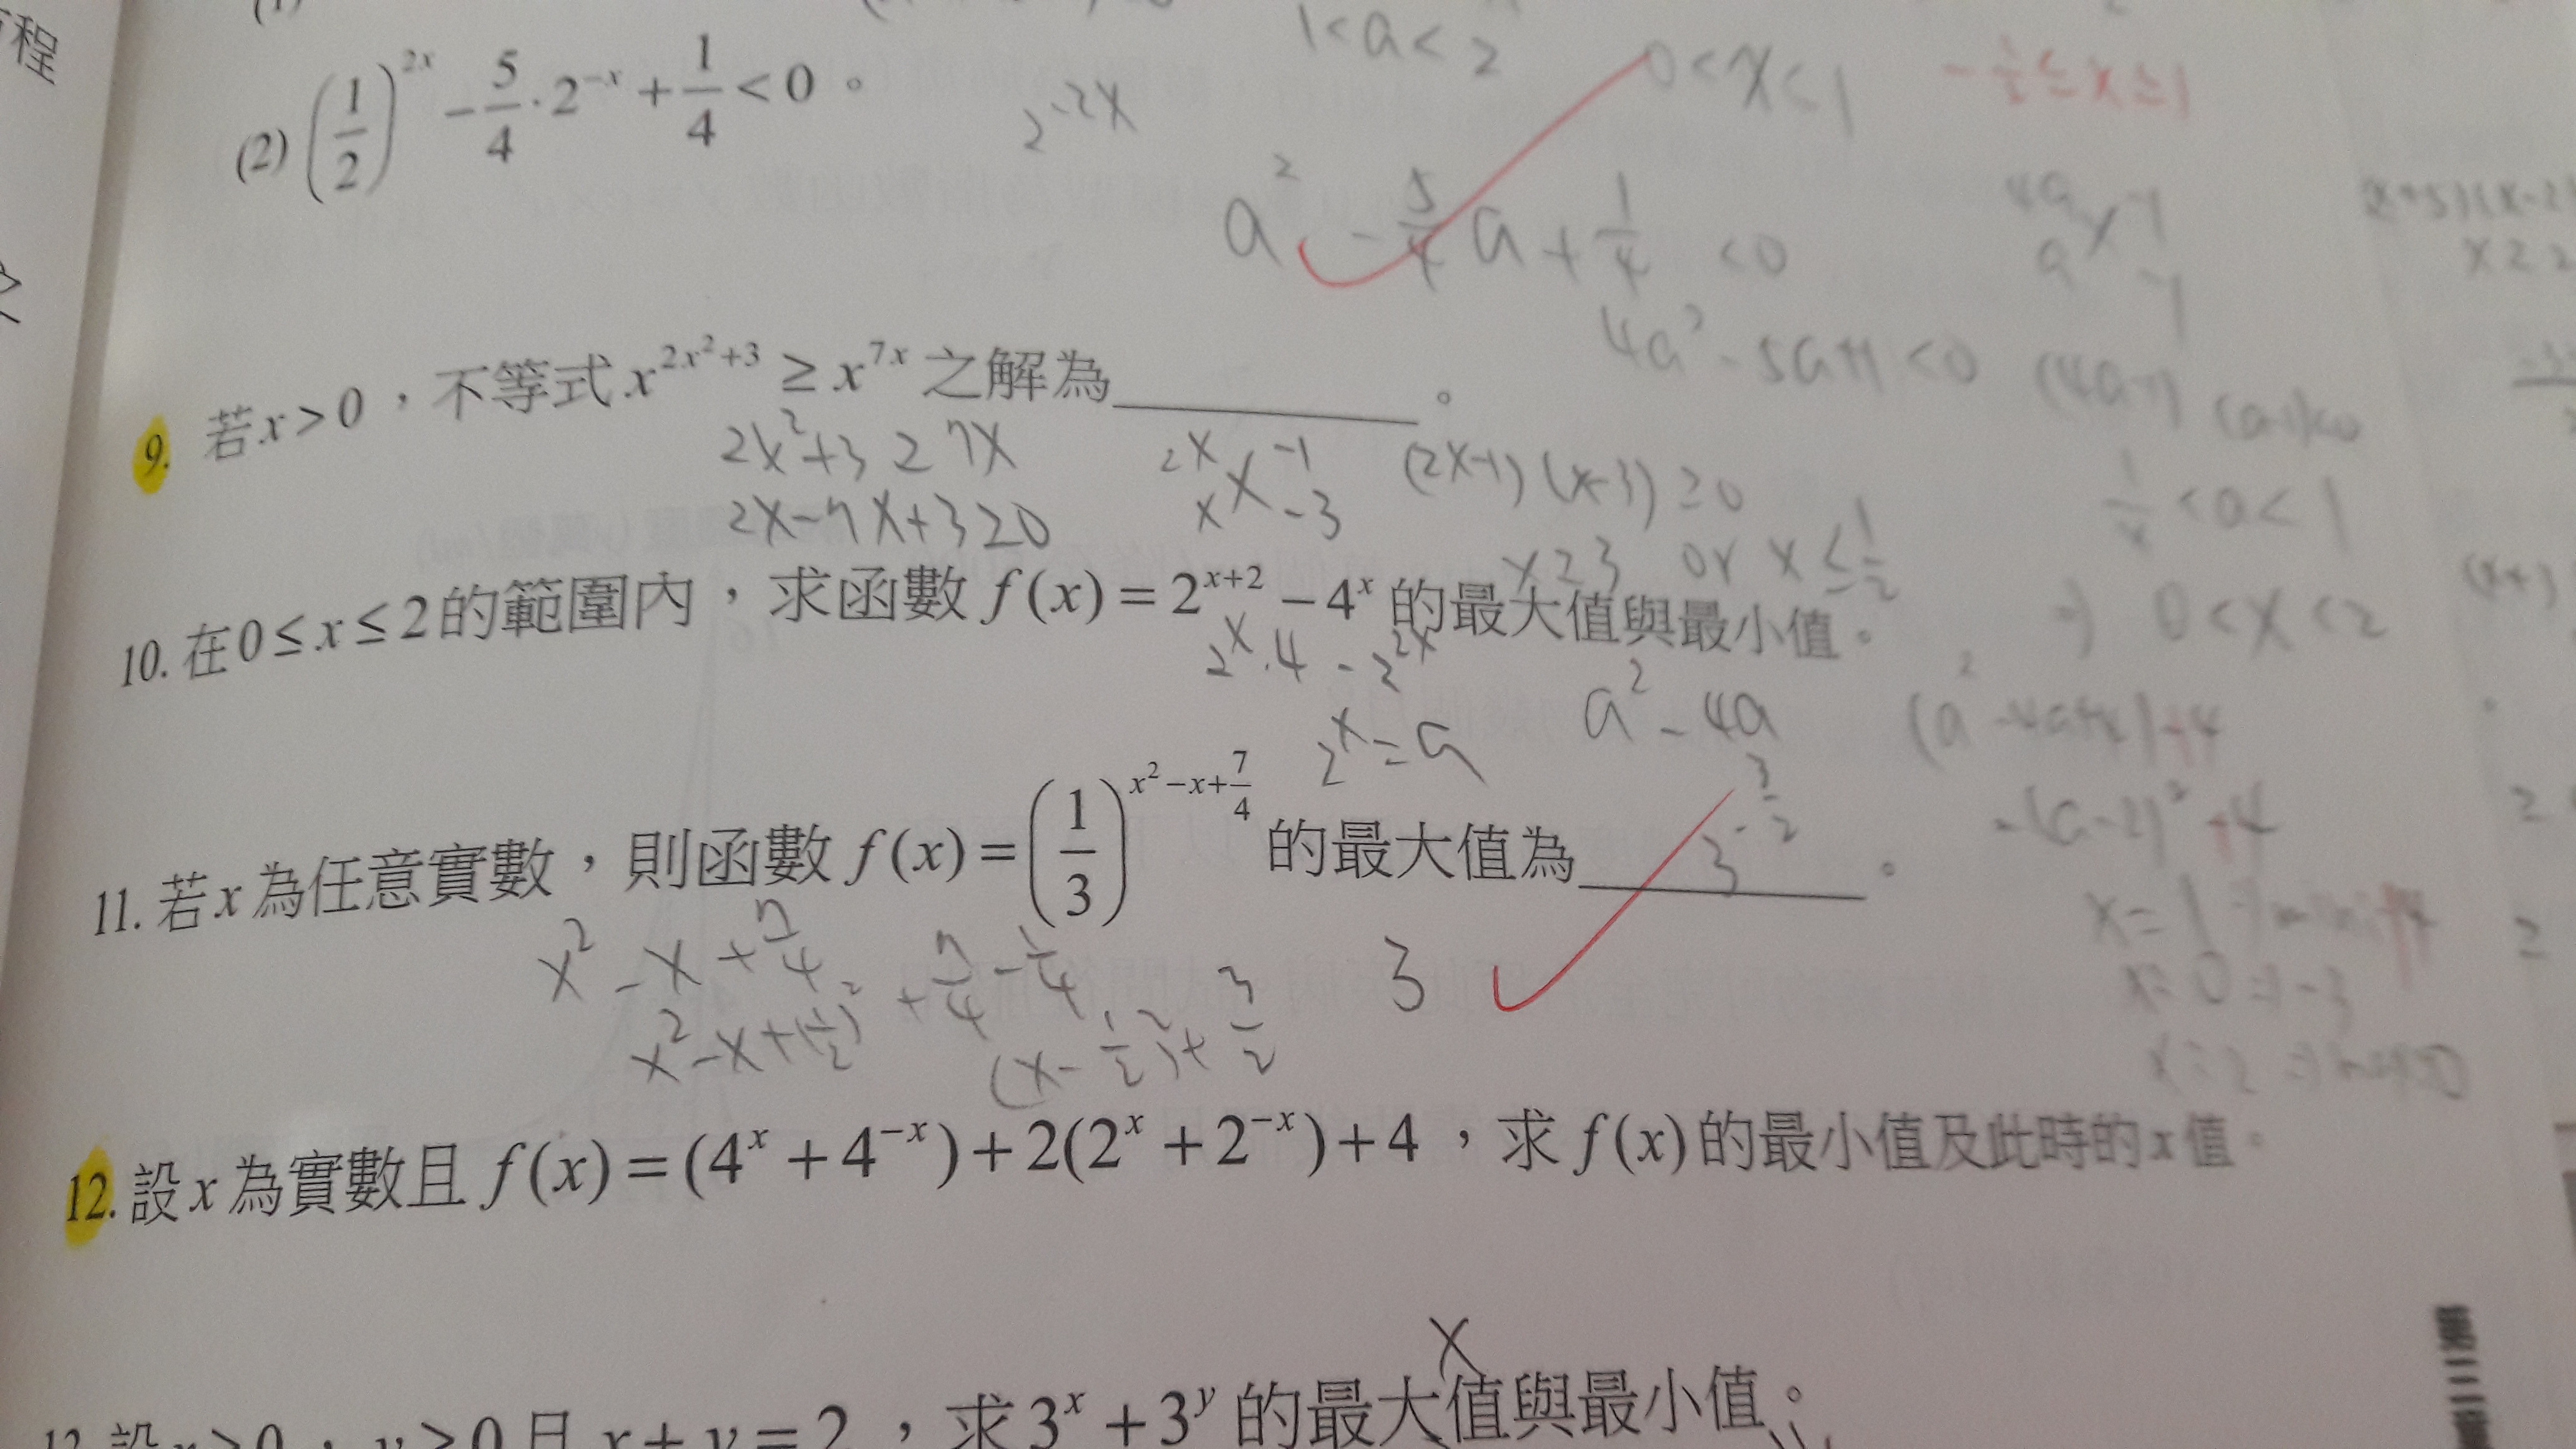 程
(2) (1/2)^{2x} - 5/4 · 2^{-x} + 1/4 < 0 。
1 < a < 2
0 < x < 1
2^{-2x}
a² - 5/4 a + 1/4 < 0
4a -1
a -1
4a² - 5a + 1 < 0 (4a-1) (a-1)<0
9. 若 x > 0 , 不等式 x^{2x²+3} ≥ x^{7x} 之解為 。
2x²+3 ≥ 7x
2x -1
x -3
(2x-1) (x-3) ≥ 0
1/4 < a < 1
2x-7x+3≥0
x ≥ 3 or x ≤ 1/2
⇒ 0 < x < 2
10. 在 0 ≤ x ≤ 2 的範圍內,求函數 f(x) = 2^{x+2} - 4^x 的最大值與最小值。
2^x·4 - 2^{2x}
2^x = a
a² - 4a
(a² -4a+4)+4
-(a-2)² +4
11. 若 x 為任意實數,則函數 f(x) = (1/3)^{x²-x+7/4} 的最大值為 3^{-3/2} 。
x² - x + 7/4
x²-x+(1/2)² + 7/4 - 1/4
(x-1/2)²+ 3/2
3
x = 1
x = 0 ⇒ -3
x = 2
12. 設 x 為實數且 f(x) = (4^x + 4^{-x}) + 2(2^x + 2^{-x}) + 4 ,求 f(x) 的最小值及此時的 x 值。
x
13. 設 x > 0 , y > 0 且 x + y = 2 ,求 3^x + 3^y 的最大值與最小值。
第三章